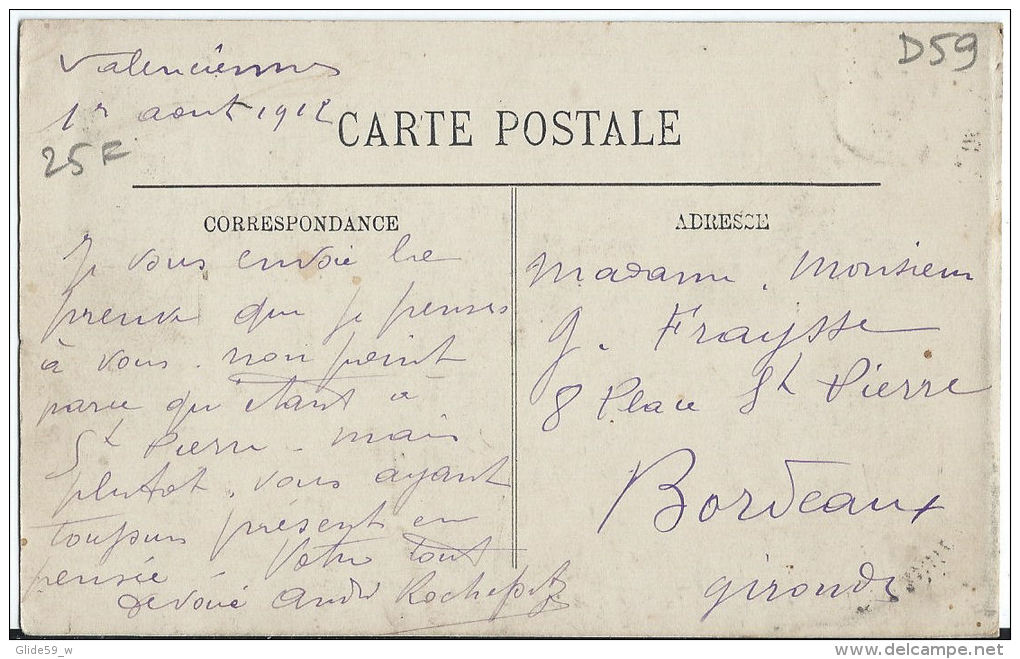 Valenciennes
D59
1r aout 1912
25F
CARTE POSTALE
CORRESPONDANCE
Je vous envoie une
preuve que je penses
à vous. non point
parce qu'étant à
St Pierre - mais
plutot, vous ayant
toujours présent en
pensée Votre tout
devoué André
ADRESSE
Madame, Monsieur
G. Fraysse
8 Place St Pierre
Bordeaux
Gironde
Glide59_w
www.delcampe.net